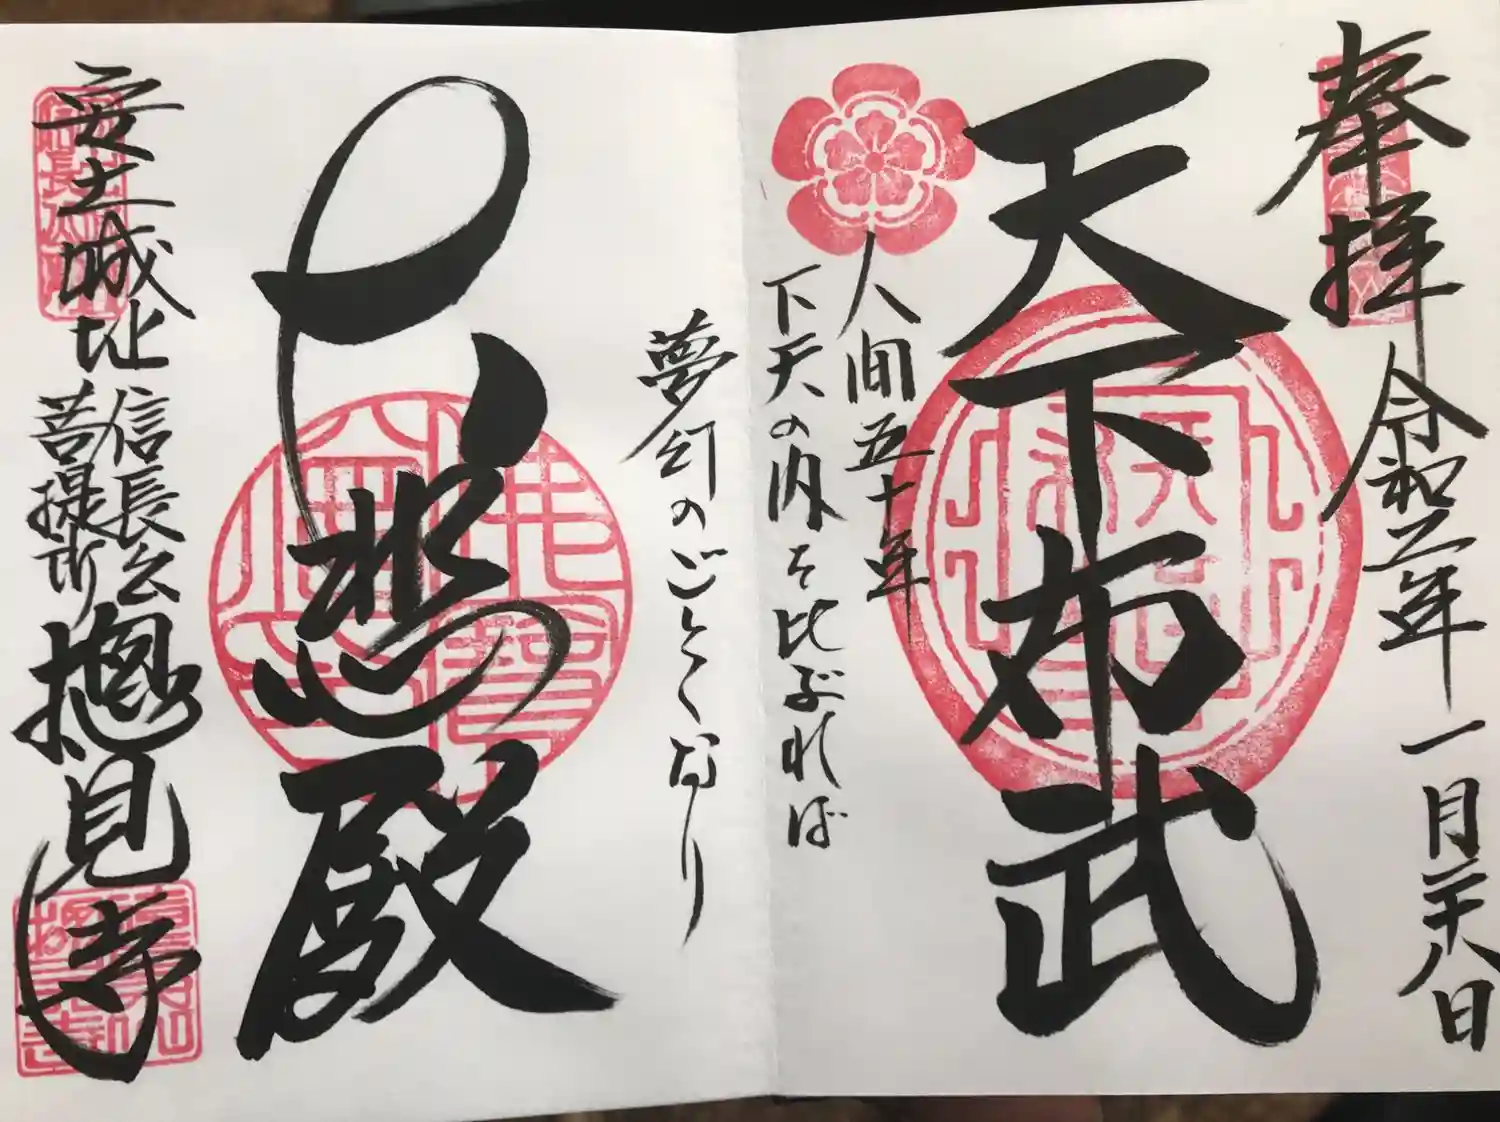 奉拝 令和二年一月二十八日
天下布武
人間五十年
下天の内を比ぶれば
夢幻のごとくなり
大悲殿
安土城址
信長公
菩提所
摠見寺